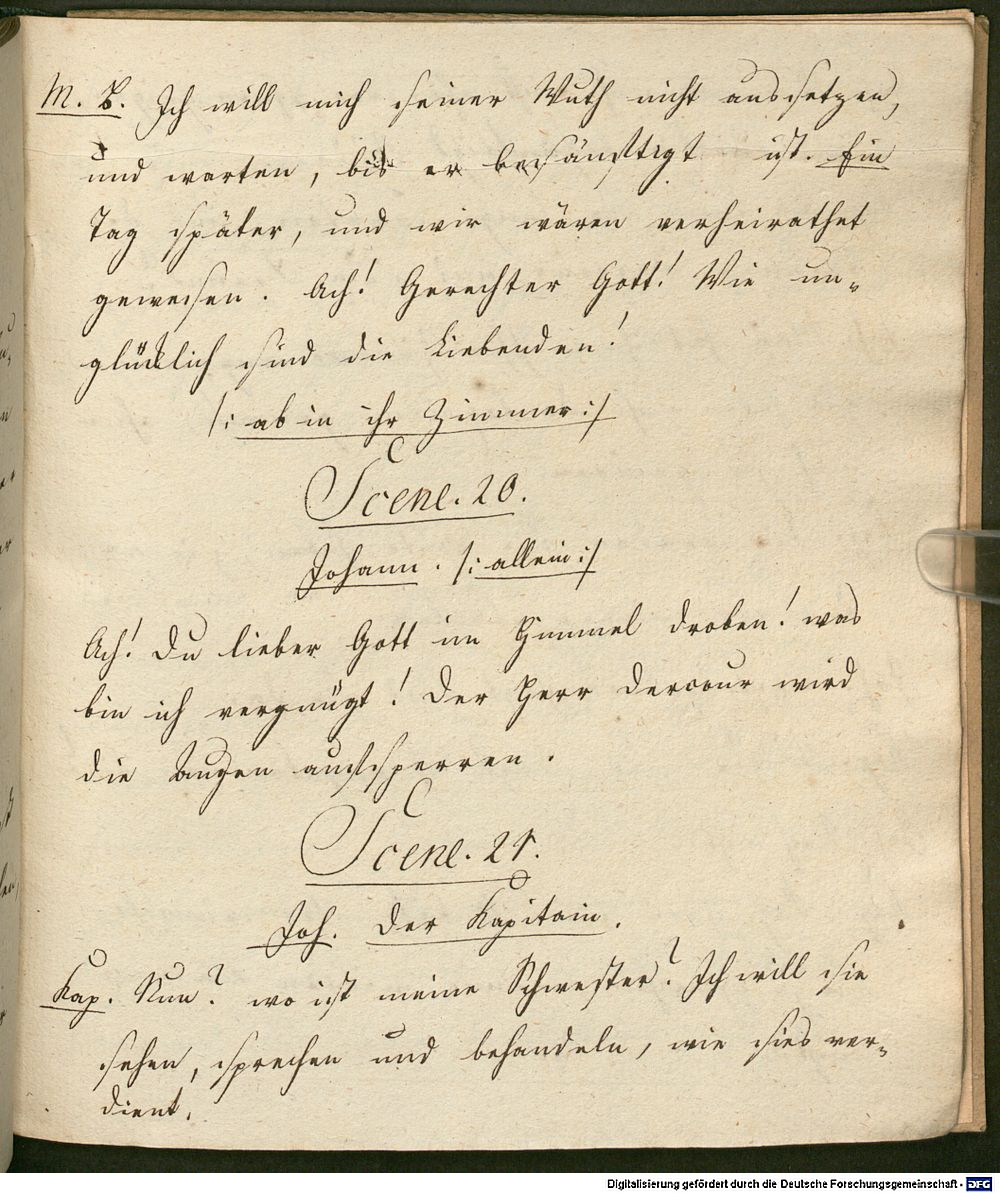 M. B. Ich will mich seiner Wuth nicht aussetzen,
und warten, bis er besänftigt ist. Ein
Tag später, und wir wären verheirathet
gewesen. Ach! Gerechter Gott! Wie un-
glücklich sind die Liebenden!
/: ab in ihr Zimmer :/
Scene. 20.
Johann. /: allein :/
Ach! Du lieber Gott im Himmel droben! was
bin ich vergnügt! Der Herr Dercour wird
die Augen aufsperren.
Scene. 21.
Joh. Der Kapitain.
Kap. Nun? wo ist meine Schwester? Ich will sie
sehen, sprechen und behandeln, wie sies ver-
dient.
Digitalisierung gefördert durch die Deutsche Forschungsgemeinschaft - DFG